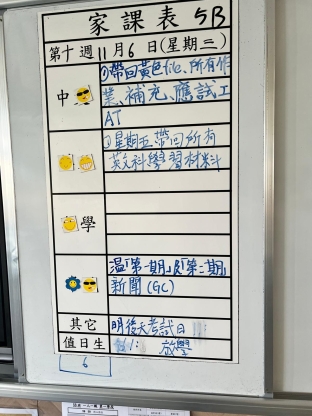 家課表 5B
第十週11月6日(星期三)
中 ①帶回黃色file、所有作
業、補充、應試工
AT
②星期五帶回所有
英文科學習材料
學
温「第一期」及「第二期」
新聞(GC)
其它 明後天考試日
值日生 放學
6